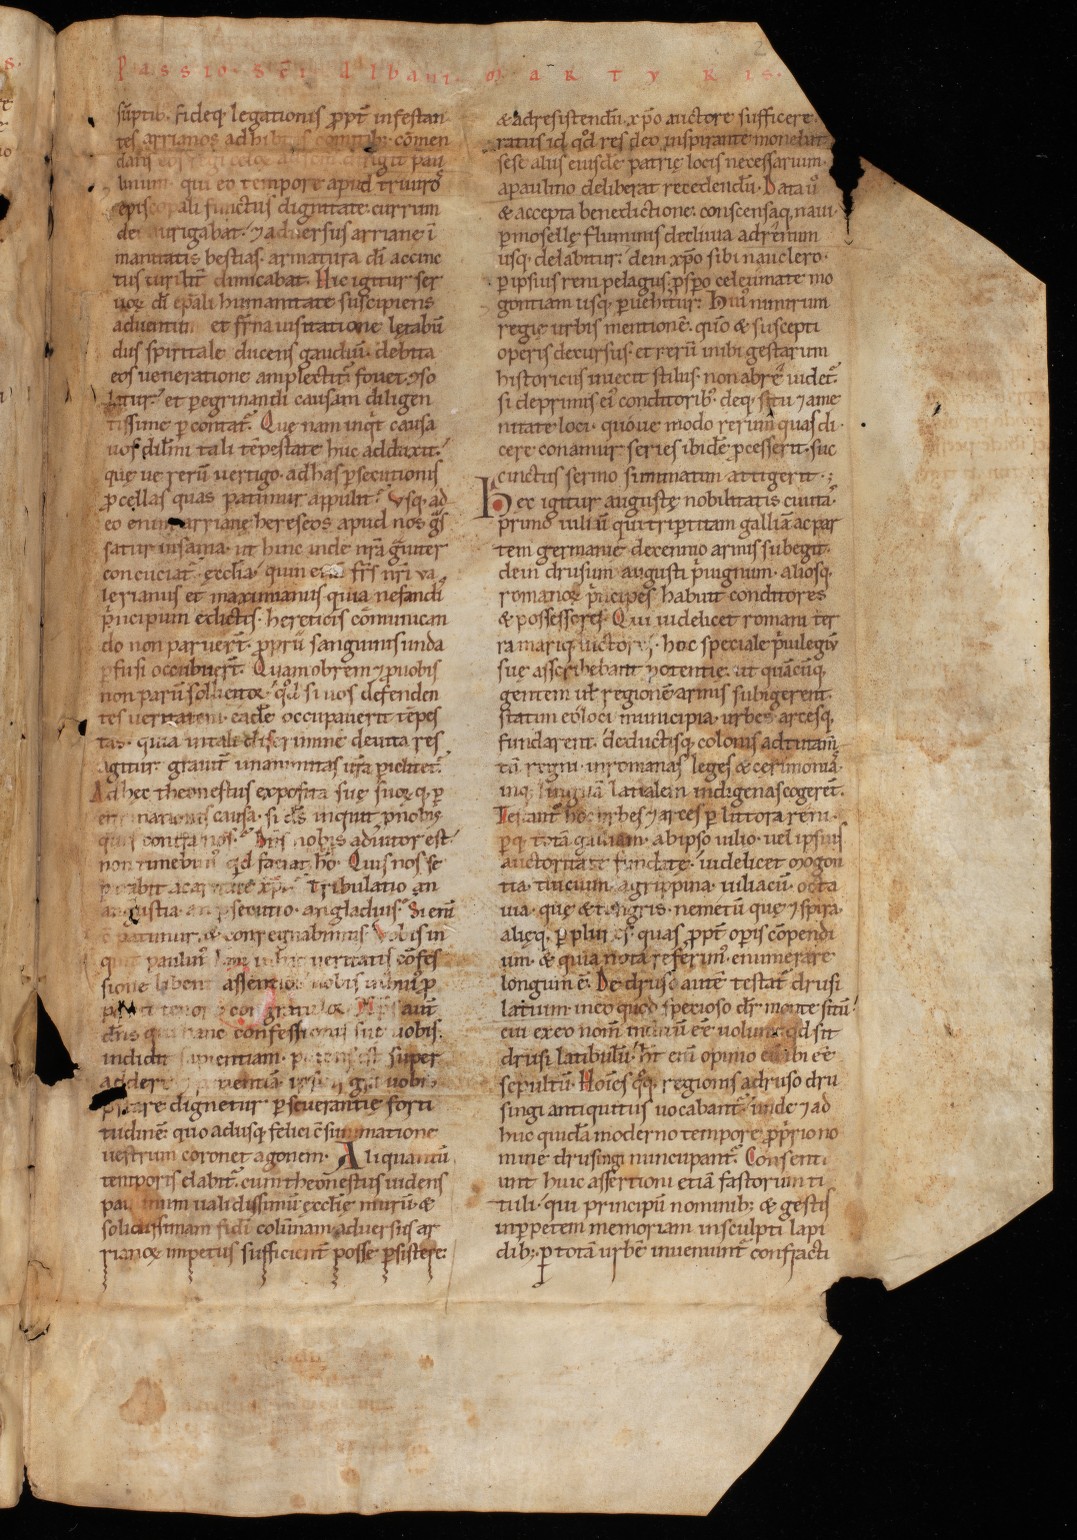 Passio. Sci Albani. Martyris.
2
sūptib. fideq; legationis ꝓpt̄ infestan
tes arrianos adhib cōmen
dans dirigit pau
linum. qui eo tempore apud treuiro
episcopali functus dignitate. currum
dei aurigabat. ⁊ aduersus arriane ī
manitatis bestias. armatura dī accinc
tus uirilit̄ dimicabat. Hic igitur ser
uoꝝ dī ep̄ali humanitate suscipiens
aduentum et fr̄na uisitatione letabū
dus spiritale ducens gaudiū. debita
eos ueneratione amplectit̄ fouet ⁊so
latur. et ꝑegrinandi causam diligen
tissime ꝑcontat̄. Que nam inqͥt causa
uos dil̄mi tali tēpestate huc adduxit.
que ue rerū uertigo. ad has ꝑsecutionis
ꝓcellas quas patimur appulit. Vsq; ad
eo enim arriane hereseos apud nos
satur insania. ut hinc inde nr̄a gͣuiter
concuciat̄ ęcclia. qum frs̄ nr̄i va
lerianus et maximianus quia nefandi
pͥncipum edictis. hereticis cōmunican
do non paruert̄. ꝓpriī sanguinis unda
ꝑfusi occubuert̄. Quam obrem ⁊ ꝓuobis
non parū sollicitor. qd̄ si uos defenden
tes ueritatem. eadē occupauerit tēpes
tas. quia in tali discrimine deuita res
agitur. grauit̄ unanimitas ur̄a ꝑiclitet̄.
Ad hec theonestus exposita suę suoꝝ q; ꝑ
egrinationis causa. si dš inquit ꝓnobis
quis contra nos. Dns̄ nobis adiutor est.
non timebimꝰ qd faciat hō. Quis nos se
parabit a caritate xp̄i. Tribulatio an
angustia. an ꝑsecutio. an gladius. Si enī
cōpatimur. & conregnabimus. Vobis in
quit pauliniꝰ uertatis cōfes
sione assentior
gratulor
dns̄ qui hanc confessionis sue uobis.
indidit sapientiam. super
addere uobis
prestare dignetur ꝑseuerantie forti
tudinē. quo adusq; felici cōsummatione
uestrum coronet agonem. Aliquantū
temporis elabit̄. cum theonestus uidens
paulinum ualidissimū ęcclię murū. &
solidissimam fidī colūnam aduersus ar
rianoꝝ impetus sufficient̄ posse ꝑsistere.
& adresistendū. xp̄o auctore sufficere.
ratus id qd̄ res deo inspirante monebat
sese alus eiusdē patrię locis necessarium.
a paulino deliberat recedendū. Data uͦ
& accepta benedictione. conscensaq; naui.
ꝑ moselle fluminis decliuia ad renum
usq; delabitur. dein xp̄o sibi nauclero.
ꝑ ipsius reni pelagus ꝓspo celeumate mo
gontiam usq; ꝑuehitur. Huiꝰ nimirum
regię urbis mentionē. quō & suscepti
operis decursus. et rerū inibi gestarum
historicus inuecit stilus. non abrē uidet̄.
si de primis ei conditoribꝰ. deq; situ ⁊ ame
nitate loci. quoue modo rerum quas di
cere conamur series ibidē ꝓcesserit. suc
cinctus sermo summatim attigerit.;
Hec igitur auguste nobilitatis ciuita.
primo iuliū qui triꝑtitam galliā ac par
tem germanie decennio armis subegit.
dein drusum augusti pͥuignum. aliosq;
romanoꝝ pͥncipes habuit conditores
& possessores. Qui uidelicet romani ter
ra mariq; uictores. hoc speciale pͥuilegiū
suę asscribebant ⁊ potentie. ut quācūq;
gentem ul̄ regionē armis subigerent.
statim eo loci municipia. urbes arcesq;
fundarent. deductisq; colonis ad tutam̄
tā regni. in romanas leges & cerimonia.
inq; linguā latialem indigenas cogeret̄.
Ferant̄ hę urbes ⁊ arces ꝑ littora reni.
ꝑq; totā galliam. ab ipso iulio. uel ipsius
auctoritate fundate. uidelicet mogon
tia. tiuciuin. agrippina. iuliacū. octa
uia. quę & tongris. nemetū quę ⁊ spira.
alięq; ꝑ plures quas ꝓpt̄ opis cōpendi
um. & quia nota referimꝰ. enumerare
longum ē. De druso autē testat̄ drusi
latium. in eo quod specioso dr̄ monte sitū.
cui ex eo nom̄ inditū eē uolunt. qd sit
drusi latibulū. hͦr enī opimo eū ibi eē
sepultū. Hoīes qͦq; regionis a druso dru
singi antiquitus uocabant̄. unde ⁊ ad
huc quidā moderno tempore. ꝓprio no
mine drusingi nuncupant̄. Consenti
unt huic assertioni etiā fastorum ti
tuli. qui principū nominib; & gestis
inꝑpetem memoriam insculpti lapi
dib; ꝑ totā urbē inueniunt̄ confracti